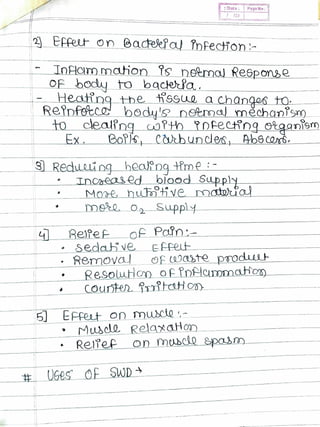 Date: Page No.
2) Effect on Bacterial infection:-
- Inflammation is normal Response
of body to bacteria.
- Heating the tissue a changes to
Reinforce body's normal mechanism
to dealing with infecting organism
Ex. Boils, Carbuncles, Abscess.
3) Reducing healing time:-
• Increased blood supply
• More nutritive material
• more O2 supply
4] Relief of Pain:-
• Sedative Effect
• Removal of waste product
• Resolution of inflammation
• Counter irritation
5] Effect on muscle:-
• Muscle Relaxation
• Relief on muscle spasm
# USES OF SWD→